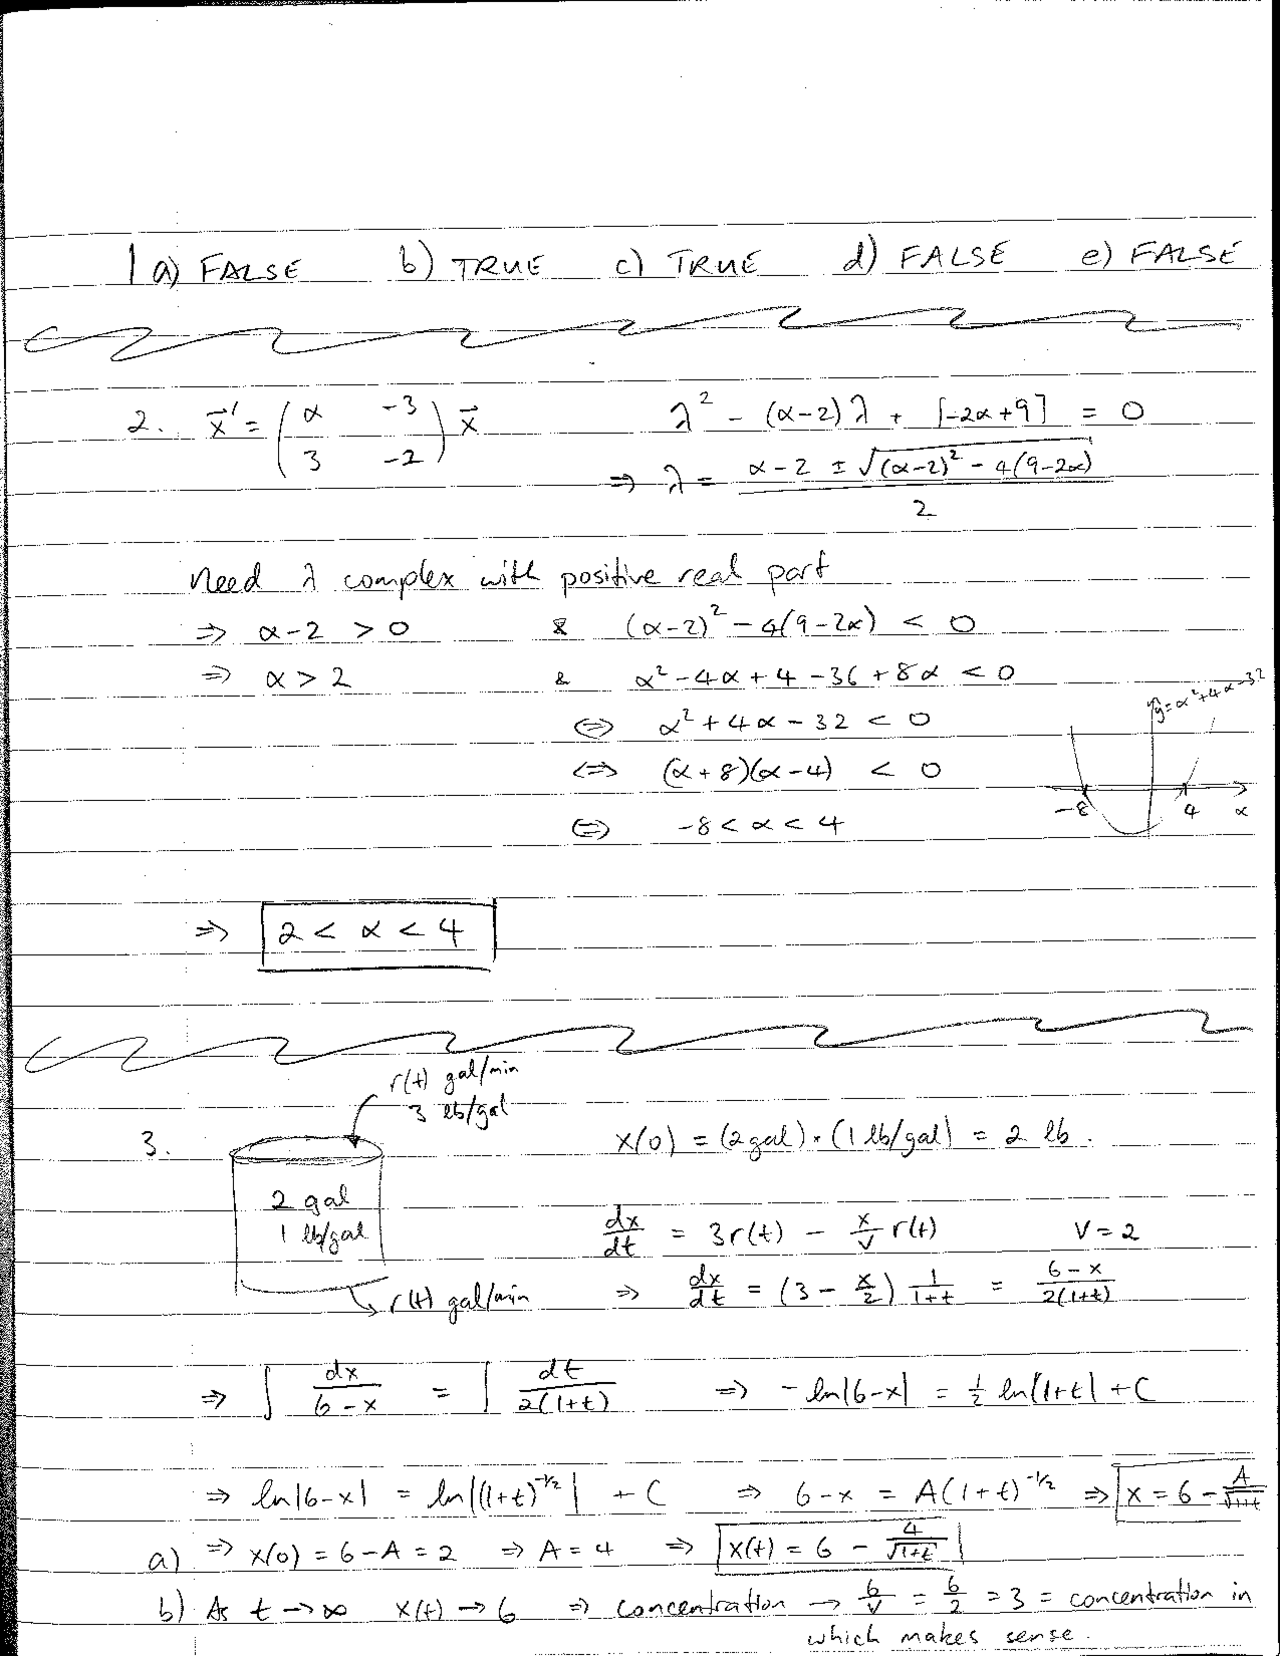 1 a) FALSE b) TRUE c) TRUE d) FALSE e) FALSE
2. x⃗' = (α -3; 3 -2) x⃗ λ² - (α-2)λ + [-2α+9] = 0
⇒ λ = (α-2 ± √((α-2)² - 4(9-2α)))/2
Need λ complex with positive real part
⇒ α-2 > 0 & (α-2)² - 4(9-2α) < 0
⇒ α > 2 & α² - 4α + 4 - 36 + 8α < 0
y = α²+4α-32
⇔ α² + 4α - 32 < 0
⇔ (α+8)(α-4) < 0
-8 4 α
⇔ -8 < α < 4
⇒ 2 < α < 4
r(t) gal/min
3 lb/gal
3. x(0) = (2 gal)·(1 lb/gal) = 2 lb.
2 gal
1 lb/gal
dx/dt = 3r(t) - x/V r(t) V = 2
r(t) gal/min ⇒ dx/dt = (3 - x/2) 1/(1+t) = (6-x)/(2(1+t))
⇒ ∫ dx/(6-x) = ∫ dt/(2(1+t)) ⇒ -ln|6-x| = ½ ln|1+t| + C
⇒ ln|6-x| = ln|(1+t)^(-1/2)| + C ⇒ 6-x = A(1+t)^(-1/2) ⇒ x = 6 - A/√(1+t)
a) ⇒ x(0) = 6-A = 2 ⇒ A = 4 ⇒ x(t) = 6 - 4/√(1+t)
b) As t → ∞ x(t) → 6 ⇒ concentration → 6/V = 6/2 = 3 = concentration in
which makes sense.